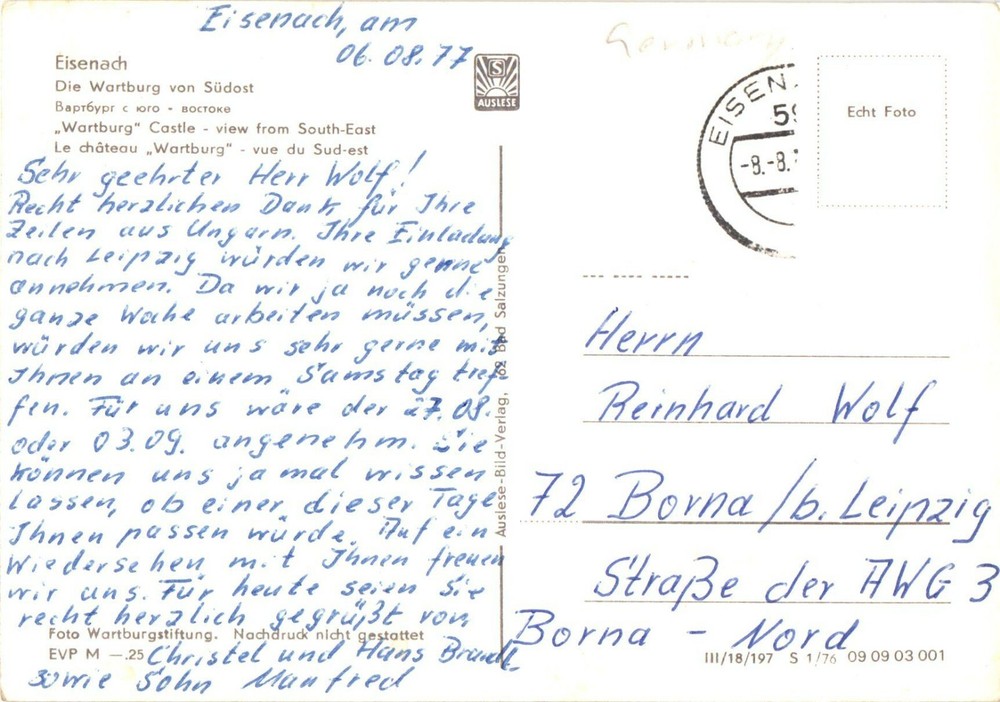 Eisenach, am
06.08.77
Eisenach
Die Wartburg von Südost
Вартбург с юго - востоке
„Wartburg" Castle - view from South-East
Le château „Wartburg" - vue du Sud-est
S
AUSLESE
Germany
EISEN
59
-8.-8.
Echt Foto
Sehr geehrter Herr Wolf!
Recht herzlichen Dank für Ihre
Zeilen aus Ungarn. Ihre Einladung
nach Leipzig würden wir gerne
annehmen. Da wir ja noch die
ganze Wohe arbeiten müssen,
würden wir uns sehr gerne mit
Ihnen an einem Samstag tref-
fen. Für uns wäre der 27.08.
oder 03.09. angenehm. Sie
können uns ja mal wissen
lassen, ob einer dieser Tage
Ihnen passen würde. Auf ein
Wiedersehen mit Ihnen freuen
wir uns. Für heute seien Sie
recht herzlich gegrüßt von
Christel und Hans Brandt
sowie Sohn Manfred
Foto Wartburgstiftung. Nachdruck nicht gestattet
EVP M —.25
Auslese-Bild-Verlag, 62 Bad Salzungen
Herrn
Reinhard Wolf
72 Borna /b. Leipzig
Straße der AWG 3
Borna - Nord
III/18/197 S 1/76 09 09 03 001